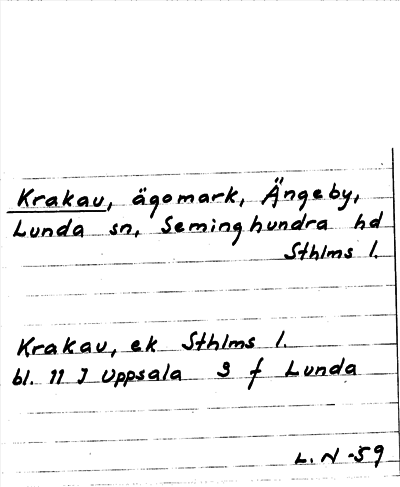 Krakau, ägomark, Ängeby,
Lunda sn, Seminghundra hd
Sthlms l.
Krakau, ek Sthlms l.
bl. 11 J Uppsala 9 f Lunda
L. N -59